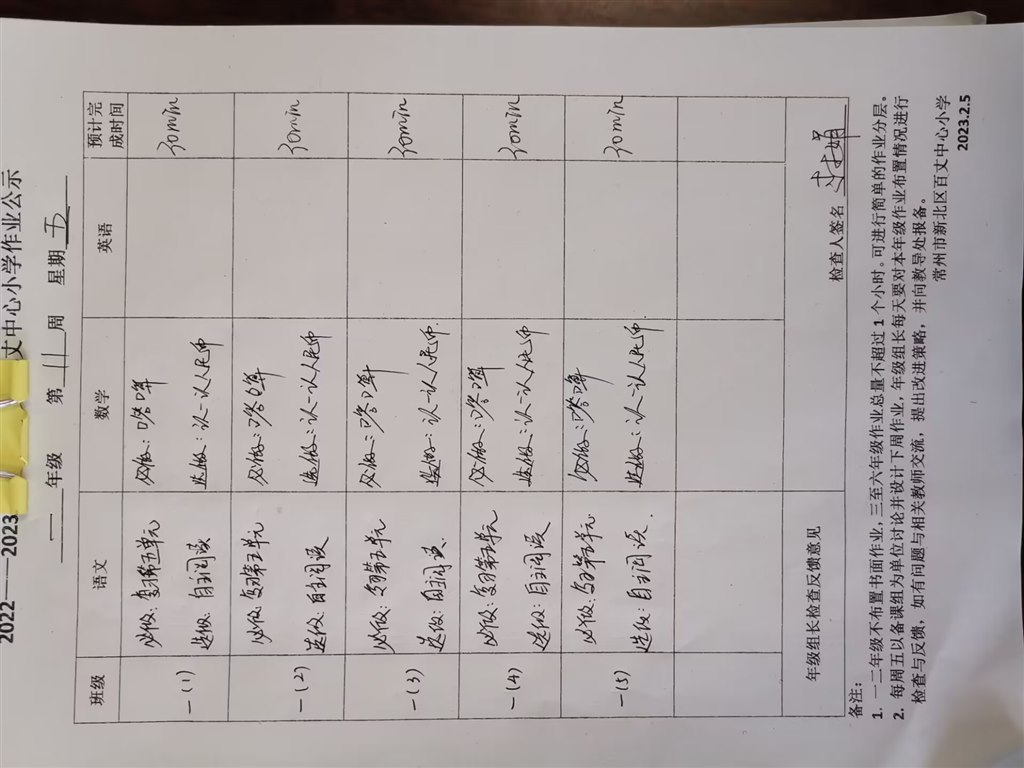 2022——2023
丈中心小学作业公示
一 年级 第 11 周 星期 五
班级 语文 数学 英语 预计完成时间
一(1) 必做:复习第五单元 必做:口答口算 30min
选做:自主阅读 选做:认一认人民币
一(2) 必做:复习第五单元 必做:口答口算 30min
选做:自主阅读 选做:认一认人民币
一(3) 必做:复习第五单元 必做:口答口算 30min
选做:自主阅读 选做:认一认人民币
一(4) 必做:复习第五单元 必做:口答口算 30min
选做:自主阅读 选做:认一认人民币
一(5) 必做:复习第五单元 必做:口答口算 30min
选做:自主阅读. 选做:认一认人民币
年级组长检查反馈意见 检查人签名
备注:
1. 一二年级不布置书面作业,三至六年级作业总量不超过 1 个小时。可进行简单的作业分层。
2. 每周五以备课组为单位讨论并设计下周作业,年级组长每天要对本年级作业布置情况进行
检查与反馈,如有问题与相关教师交流,提出改进策略,并向教导处报备。
常州市新北区百丈中心小学
2023.2.5